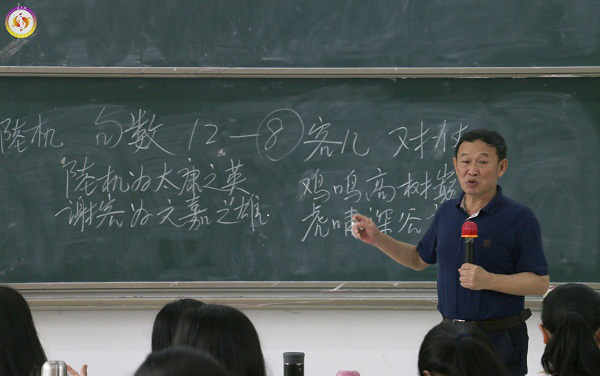 陆机 句数 12—⑧ 客儿 对仗
“陆机为太康之英
谢客为元嘉之雄
鸡鸣高树巅
虎啸深谷